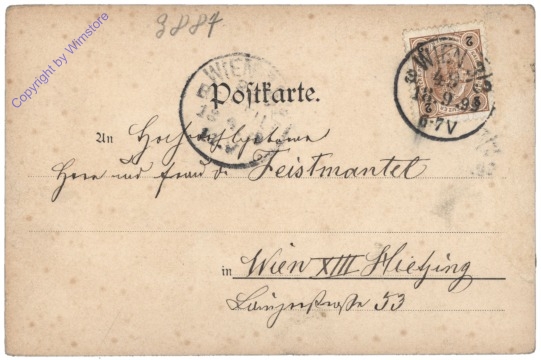 3884
Copyright by Wimstore
WIEN
Postkarte.
2
WIEN
4.9.
18.9.98
6-7V
An Hochwohlgeboren
Herr und Frau v. Feistmantel
in Wien XIII Hietzing
Lainzerstraße 53